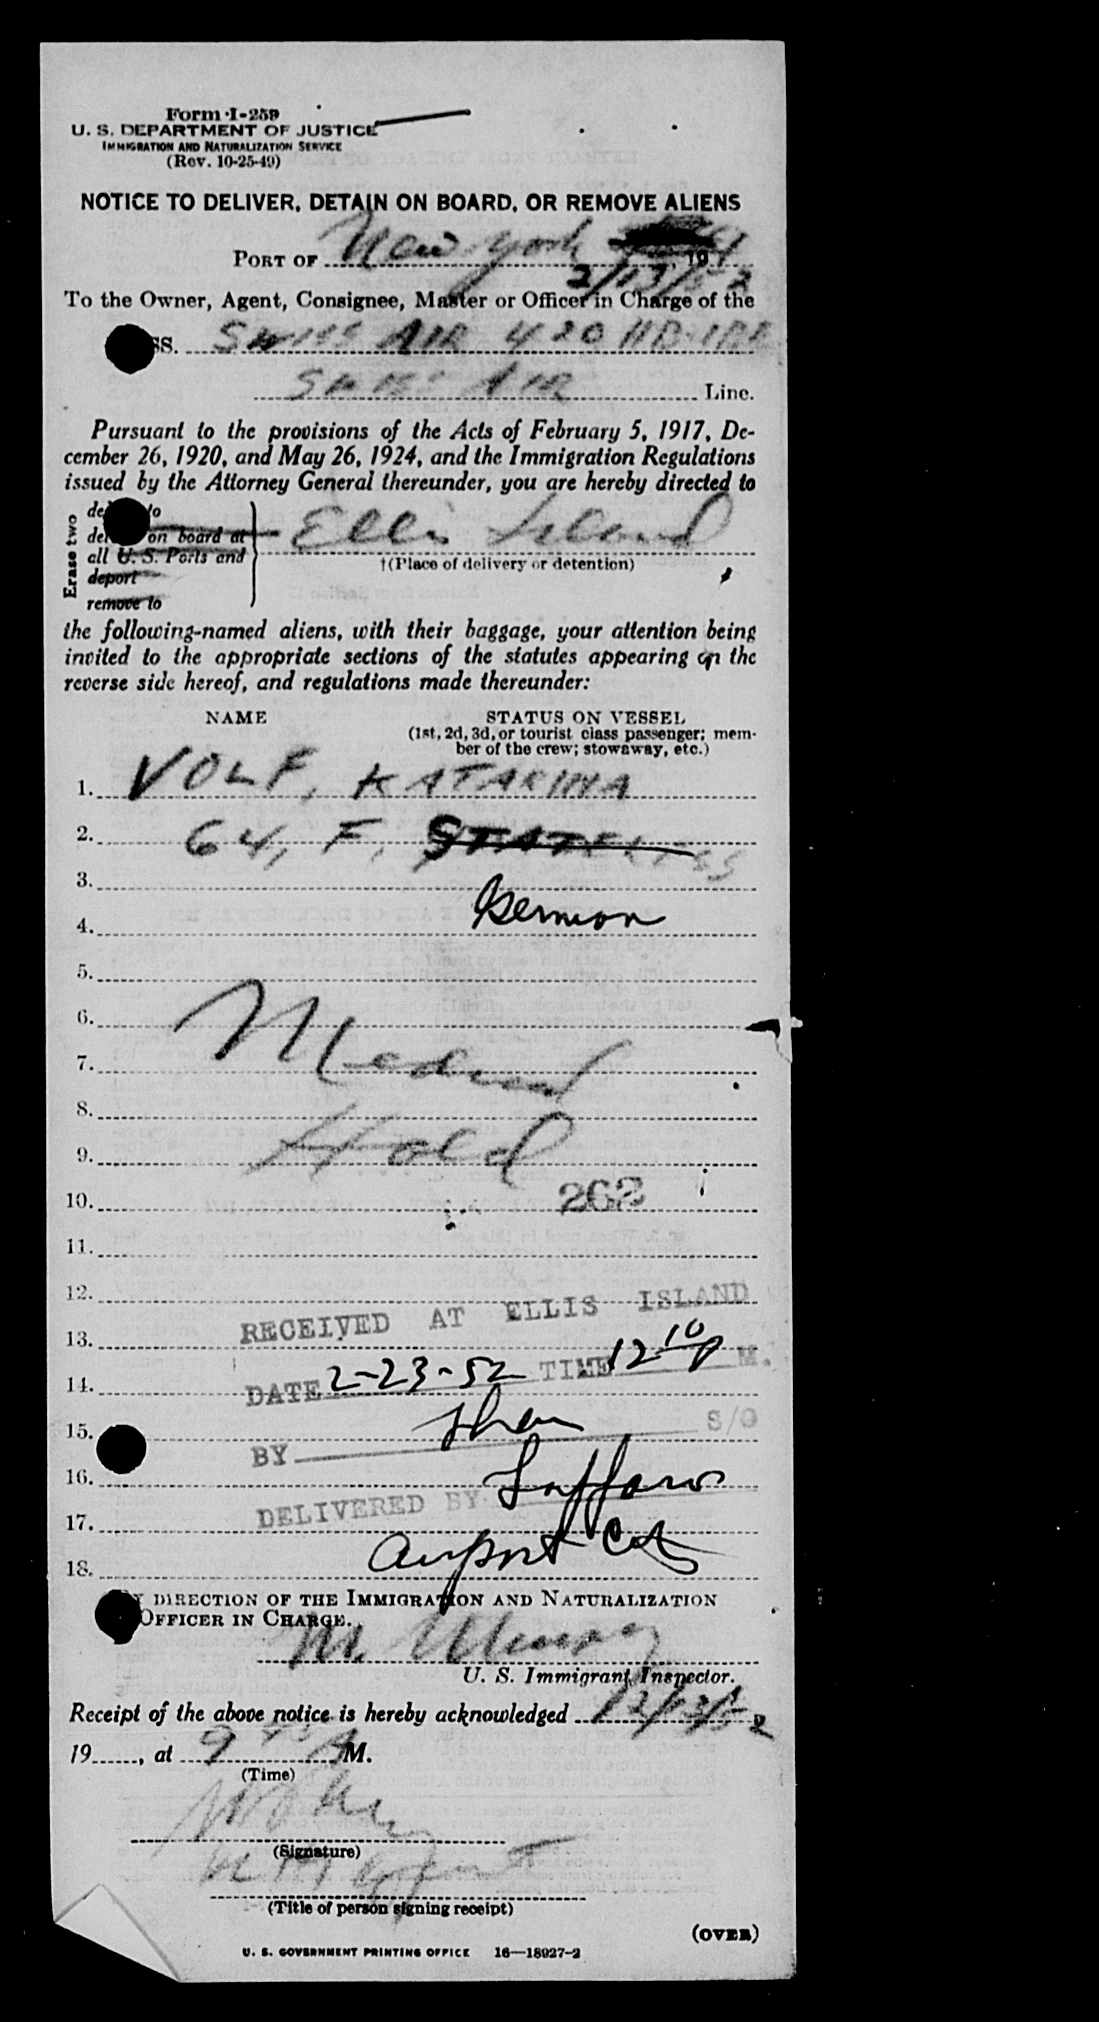 Form I-259
U. S. DEPARTMENT OF JUSTICE
IMMIGRATION AND NATURALIZATION SERVICE
(Rev. 10-25-49)
NOTICE TO DELIVER, DETAIN ON BOARD, OR REMOVE ALIENS
PORT OF New York, 19
To the Owner, Agent, Consignee, Master or Officer in Charge of the
SS. SWISS AIR 420 HB-
SWISS AIR Line.
Pursuant to the provisions of the Acts of February 5, 1917, De-
cember 26, 1920, and May 26, 1924, and the Immigration Regulations
issued by the Attorney General thereunder, you are hereby directed to
Erase two
to
on board at
all U. S. Ports and
deport
remove to
Ellis Island
†(Place of delivery or detention)
the following-named aliens, with their baggage, your attention being
invited to the appropriate sections of the statutes appearing on the
reverse side hereof, and regulations made thereunder:
NAME STATUS ON VESSEL
(1st, 2d, 3d, or tourist class passenger; mem-
ber of the crew; stowaway, etc.)
1. VOLF, KATARINA
2. 64, F, STATELESS
3. German
4.
5.
6. Medical
7.
8. Hold
9.
10. 262
11.
12.
RECEIVED AT ELLIS ISLAND
13.
DATE 2-23-52 TIME 12 10 P M.
14.
15. S/O
BY
16.
DELIVERED BY
17.
Airport
18.
DIRECTION OF THE IMMIGRATION AND NATURALIZATION
OFFICER IN CHARGE.
M. Murray
U. S. Immigrant Inspector.
Receipt of the above notice is hereby acknowledged
19......, at 9 AM.
(Time)
(Signature)
(Title of person signing receipt)
(OVER)
U. S. GOVERNMENT PRINTING OFFICE 16—18927-2